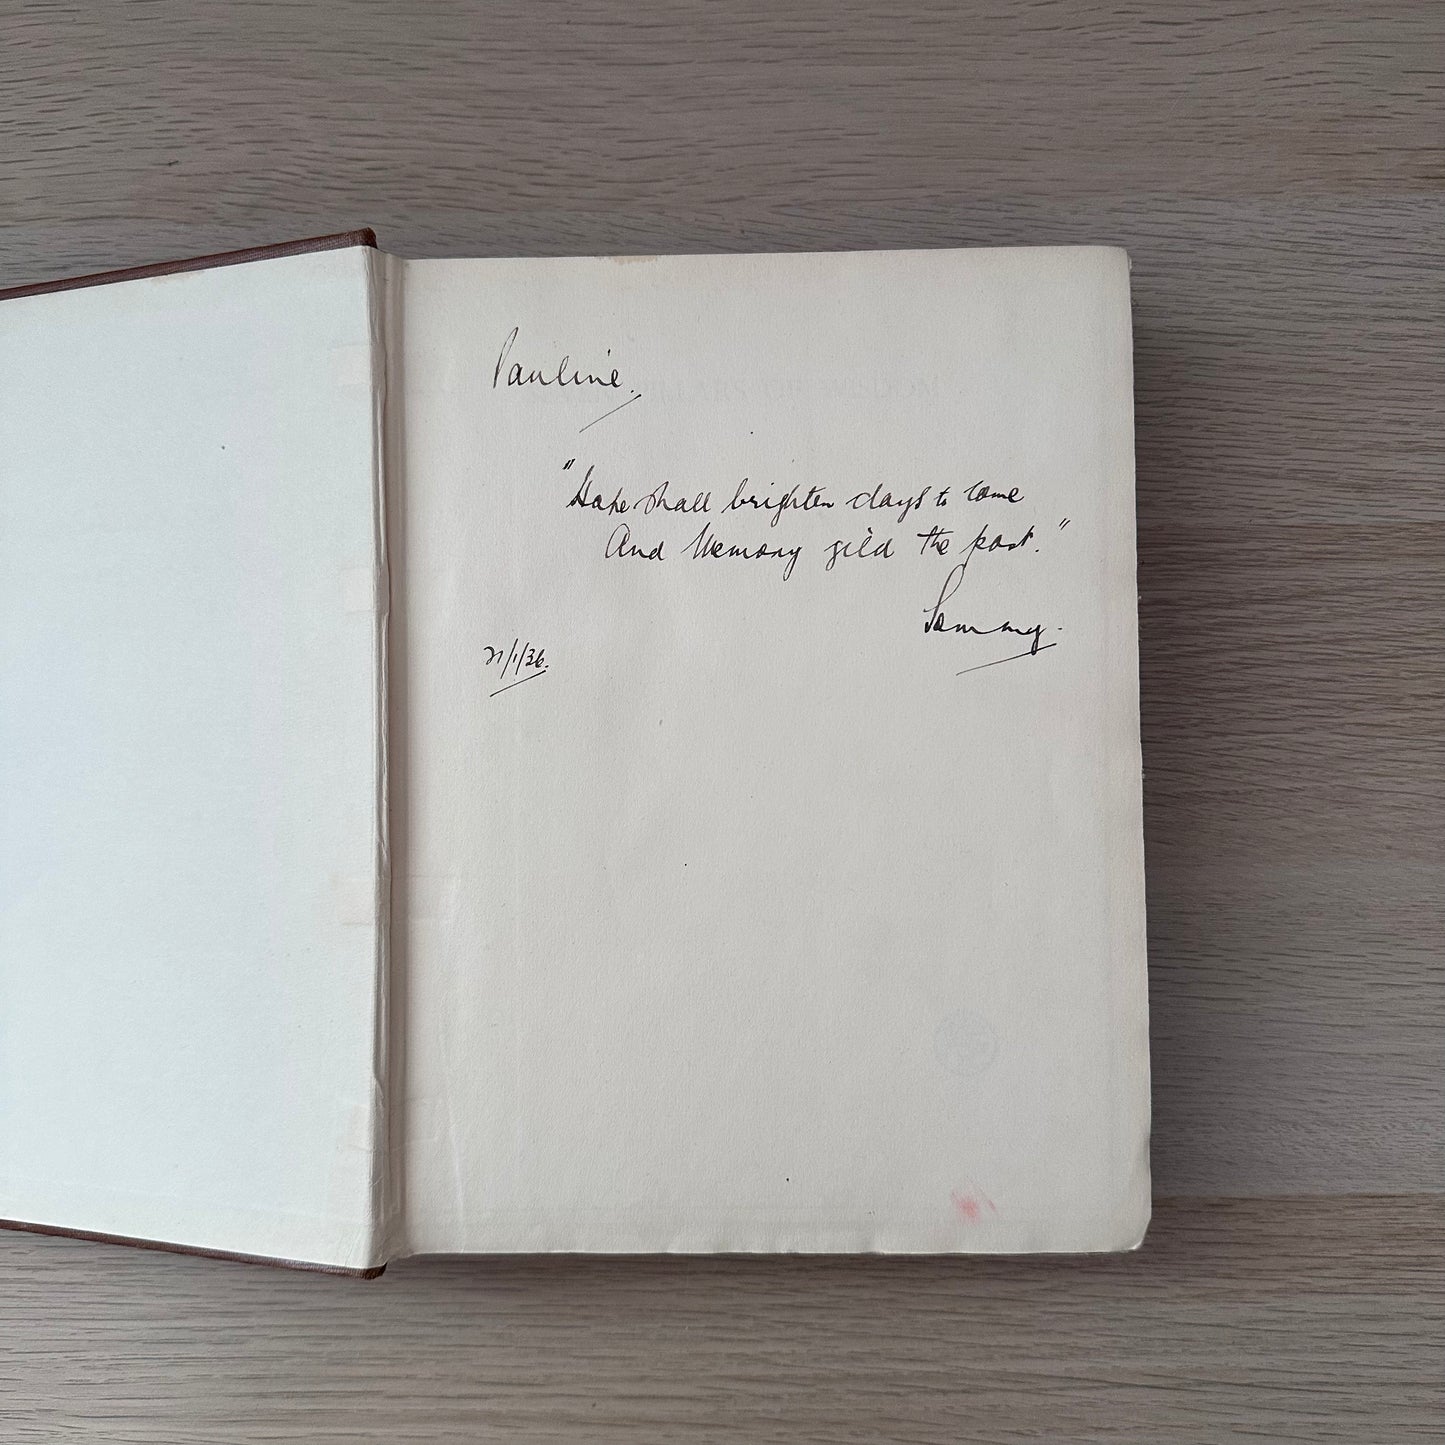 Pauline.
"Hope shall brighten days to come
And Memory gild the past."
Sammy.
21/1/36.
SEVEN PILLARS OF WISDOM